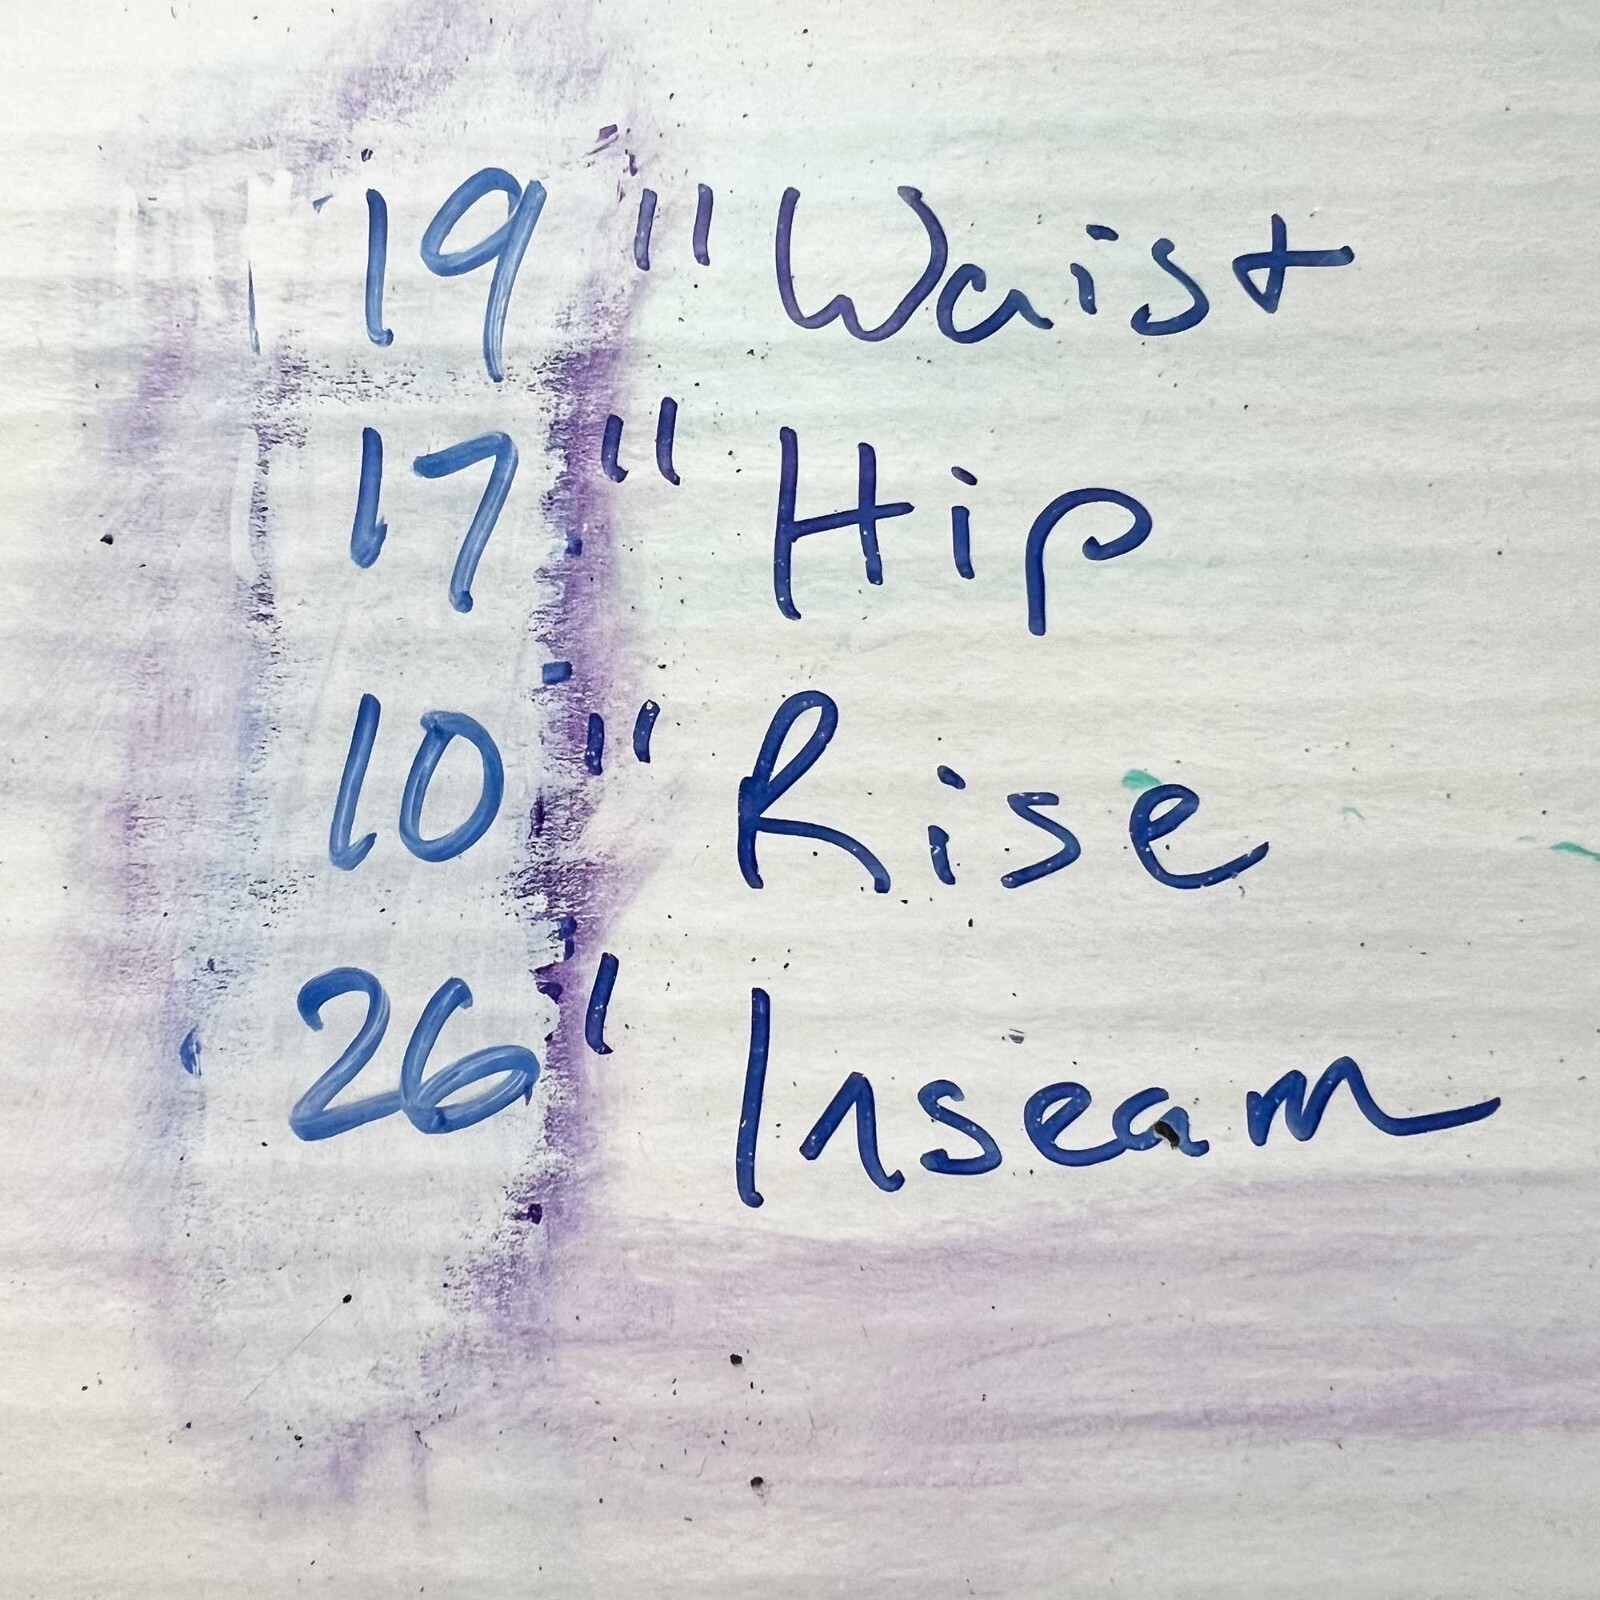 19" Waist
17" Hip
10" Rise
26' Inseam